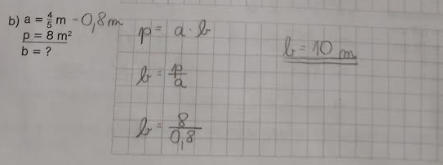 b) a = 4/5 m - 0,8 m
p = 8 m²
b = ?
p = a · b
b = p/a
b = 8/0,8
b = 10 m